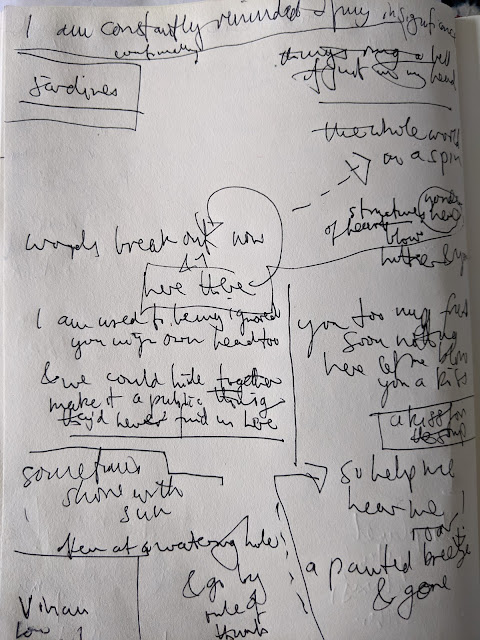 I am constantly reminded of my insignificance
continually
Sardines
things ring a bell
if just in my head
the whole world
on a spin
words break out now
here there
structures
of heart
yonder
here
blow
hither & yon
I am used to being ignored
you in yr own head too
& we could hide together
make it a public thing
they'd never find us here
you too must
soon nothing
here let me blow
you a kiss
a kiss for
sometimes
shone with
sun
often at a watering hole
& go by
rule of
thumb
so help me
hear me
roar!
a painted breeze
& gone
Vivian